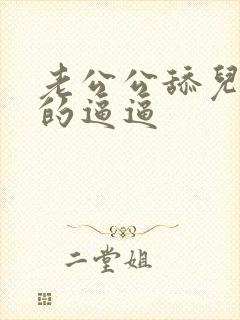 老公公舔兒
的逼逼
二堂姐